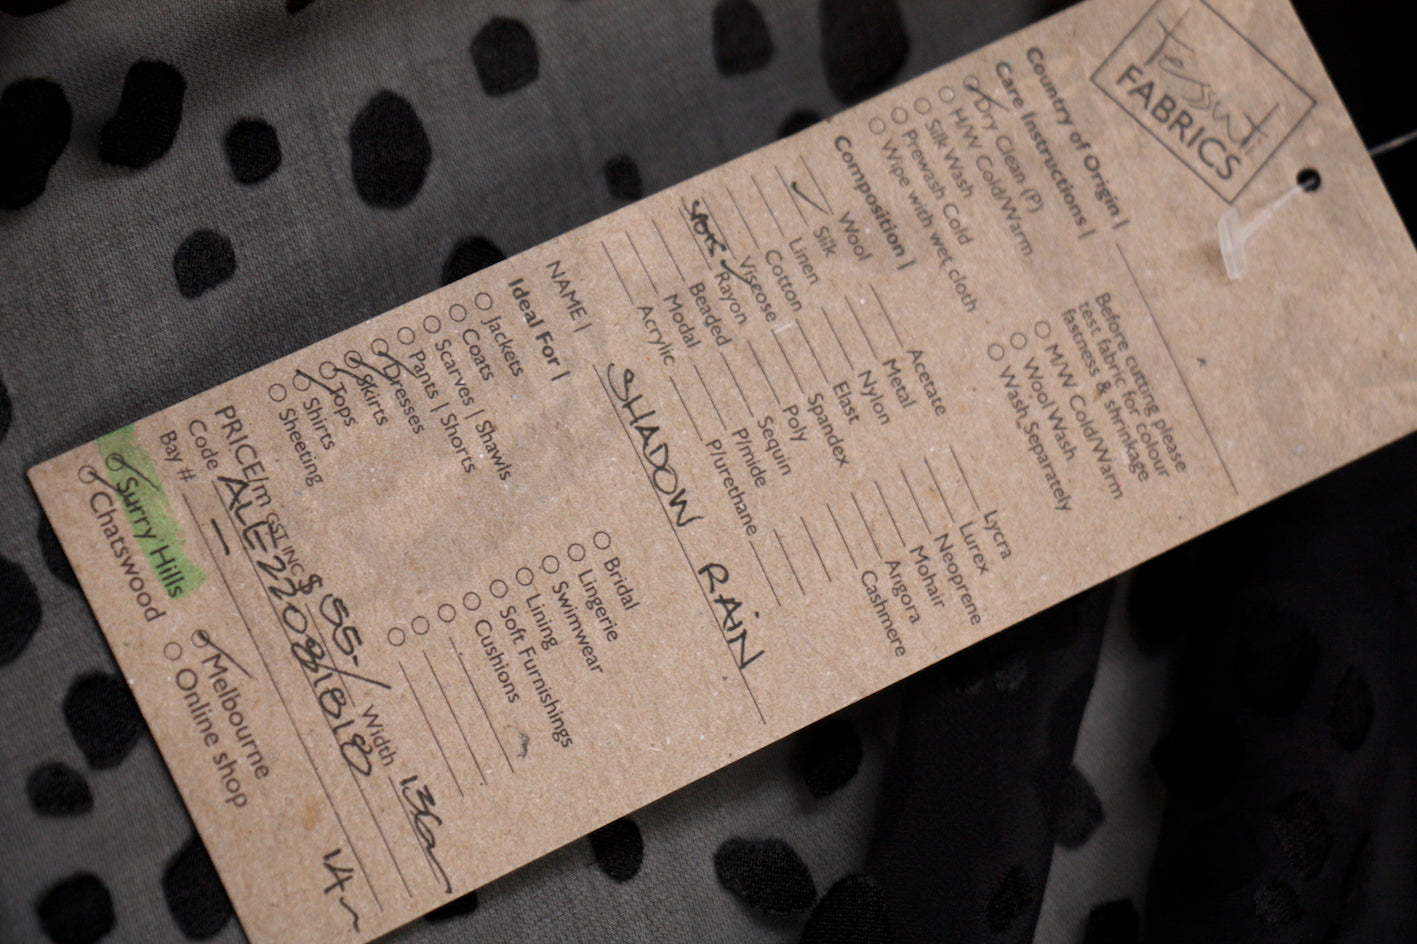 Tessuti
FABRICS
Country of Origin |
Care Instructions |
Dry Clean (P)
H/W Cold/Warm
Silk Wash
Prewash Cold
Wipe with wet cloth
Before cutting please
test fabric for colour
fastness & shrinkage
M/W Cold/Warm
Wool Wash
Wash Separately
Composition |
Wool Acetate Lycra
Silk Metal Lurex
Linen Nylon Neoprene
Cotton Elast Mohair
Viscose Spandex Angora
Rayon Poly Cashmere
Beaded Sequin
Modal P/mide
Acrylic P/urethane
NAME | SHADOW RAIN
Ideal For |
Jackets Bridal
Coats Lingerie
Scarves | Shawls Swimwear
Pants | Shorts Lining
Dresses Soft Furnishings
Skirts Cushions
Tops
Shirts
Sheeting
PRICE/m GST INC $ 55.- Width
Code ALE220818118
Bay # -
Surry Hills Melbourne
Chatswood Online shop